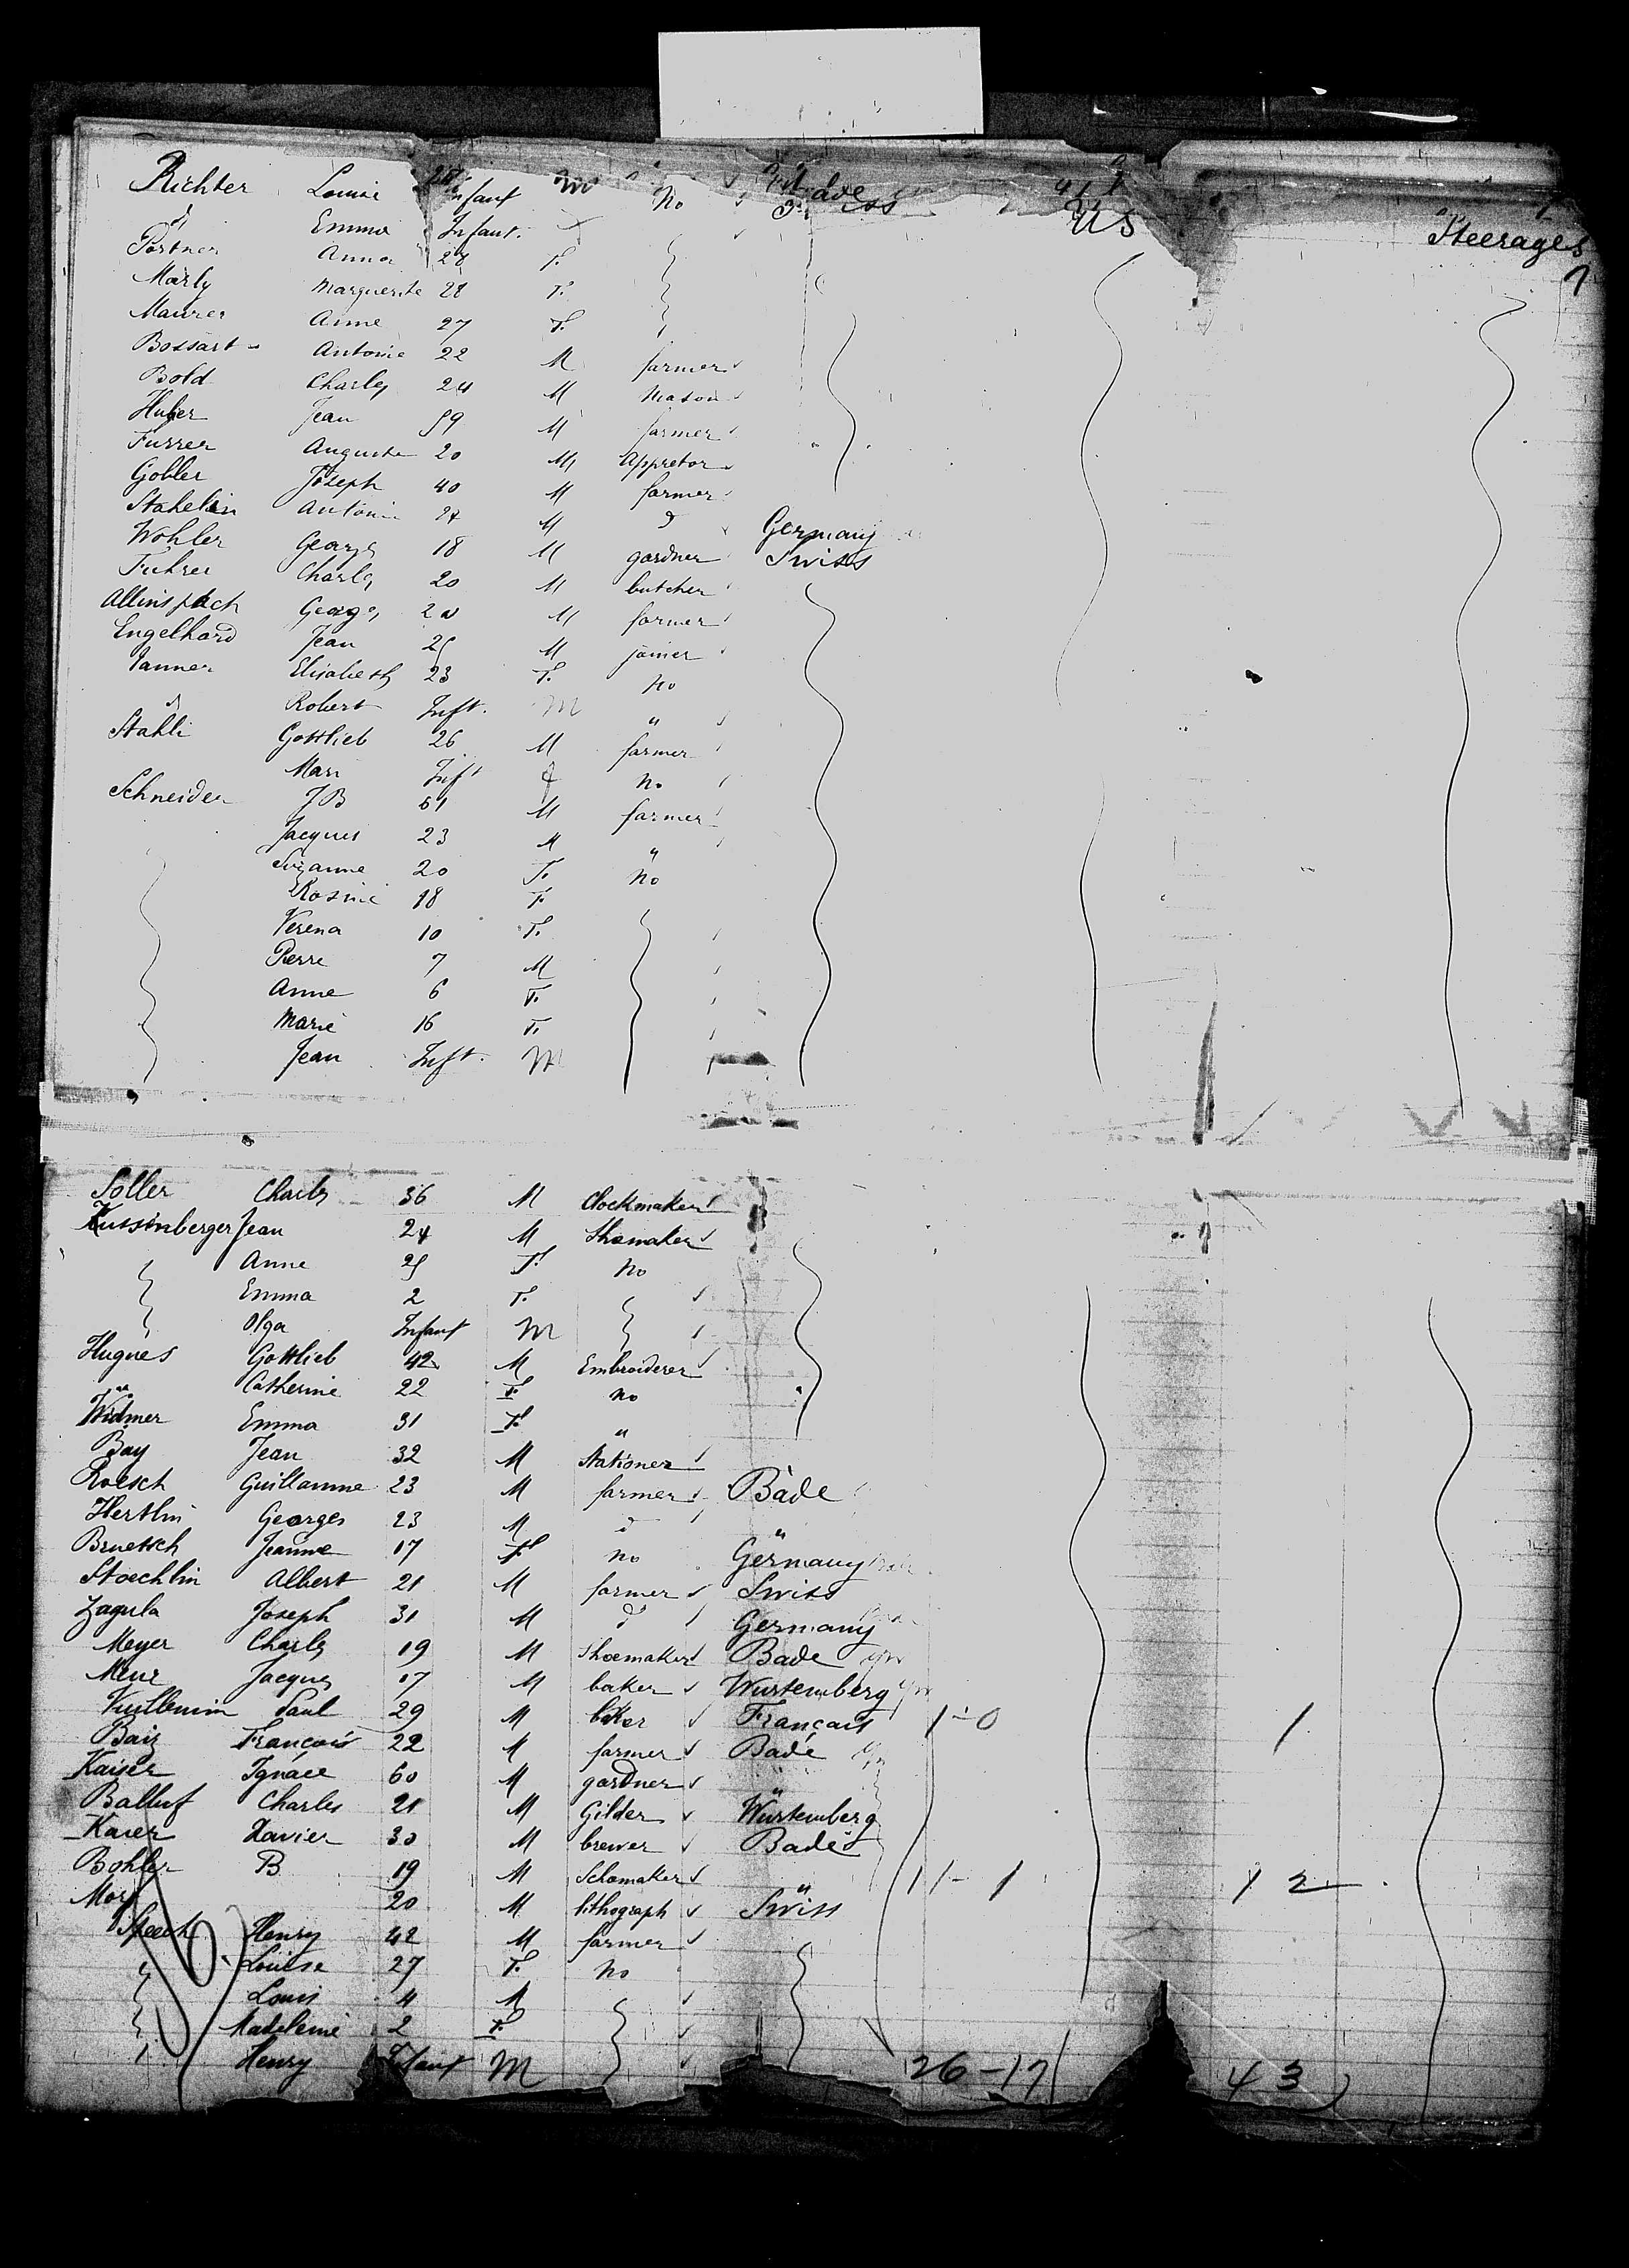 Richter Louise Infant M No Bade US
d Emma Infant. Swiss Steerages
Portner Anna 28 F.
Märly Marguerite 28 F.
Maurer Anne 27 F.
Bossart Antoine 22 M farmer
Bold Charles 24 M Mason
Huber Jean 59 M farmer
Furrer Auguste 20 M Appretor
Gobler Joseph 40 M farmer
Stahelin Antoine 27 M d Germany
Wohler Georges 18 M gardner Swiss
Fuhrer Charles 20 M butcher
Allinspach Georges 20 M farmer
Engelhard Jean 25 M joiner
Tanner Elisabeth 23 F. No
d Robert Inft. M "
Stahli Gottlieb 26 M farmer
Mari Inft f No
Schneider JB 61 M farmer
Jacques 23 M "
Suzanne 20 F. No
Rosine 18 F
Verena 10 F.
Pierre 7 M
Anne 6 F.
Marie 16 F.
Jean Inft. M
Soller Charles 36 M Clockmaker
Kussinberger Jean 24 M Shomaker
Anne 25 F. No
Emma 2 F.
Olga Infant M
Hugnes Gottlieb 42 M Embroiderer
" Catherine 22 F. no
Widmer Emma 31 F. "
Bay Jean 32 M Stationer
Roesch Guillaume 23 M farmer Bade
Hertlin Georges 23 M d "
Bruetsch Jeanne 17 F no Germany
Stoechlin Albert 21 M farmer Swiss
Zagula Joseph 31 M d Germany
Meyer Charles 19 M Shoemaker Bade
Meur Jacques 17 M baker Wurtemberg
Vuillemin Paul 29 M baker Français 1-0 1
Baiz François 22 M farmer Bade
Kaiser Ignace 60 M gardner "
Balluf Charles 21 M Gilder Wurtemberg
Karer Xavier 30 M brewer Bade
Bohler B 19 M Schomaker " 11-1 12
Morf 20 M lithograph Swiss
Specht Henry 42 M farmer
Louise 27 F. No
Louis 4 M
Madeleine 2 F.
Henry Infant M 26-17 43